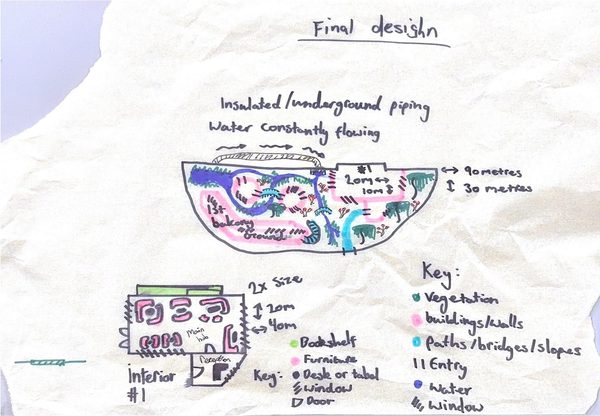 Final desighn
Insulated/underground piping
Water constantly flowing
#1
20m
10m
90metres
30 metres
1st
balkony
Ground
2x Size
20m
40m
Main
hub
Reception
Interior
#1
Bookshelf
Furniture
Key:
Desk or tabal
Window
Door
Key:
Vegetation
buildings/walls
paths/bridges/slopes
Entry
Water
Window